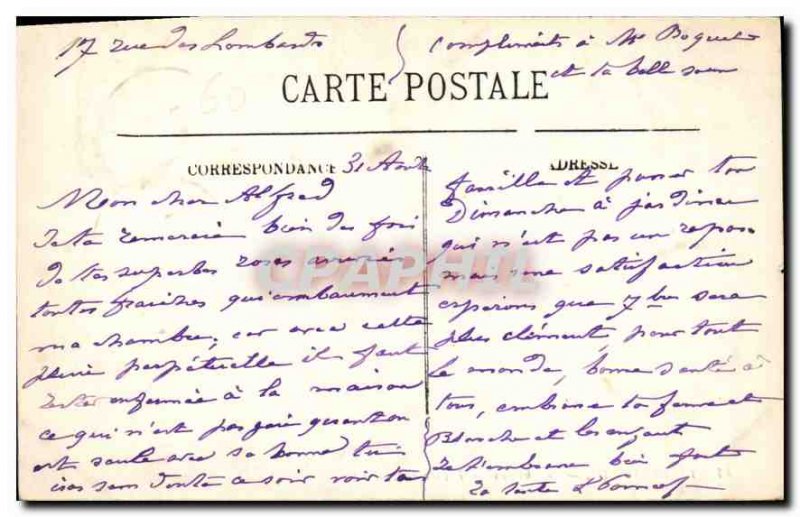 17 rue des Lombards
compliments à Mr Boquet
et ta belle sœur
CARTE POSTALE
CORRESPONDANCE 31 Août
Mon cher Alfred
Je te remercie bien des fois
de tes superbes roses
toutes fraîches qui embaument
ma chambre, car avec cette
pluie perpétuelle il faut
rester enfermée à la maison
ce qui n'est pas gaie quand on
est seule avec sa bonne tu
iras sans doute ce soir voir ta
ADRESSE
famille et passer ton
Dimanche à jardiner
qui n'est pas un repos
mais une satisfaction
espérons que 7bre sera
plus clément, pour tout
le monde, bonne santé à
tous, embrasse ta femme et
Blanche et les enfants
Je t'embrasse bien fort
ta tante
CPAPHIL